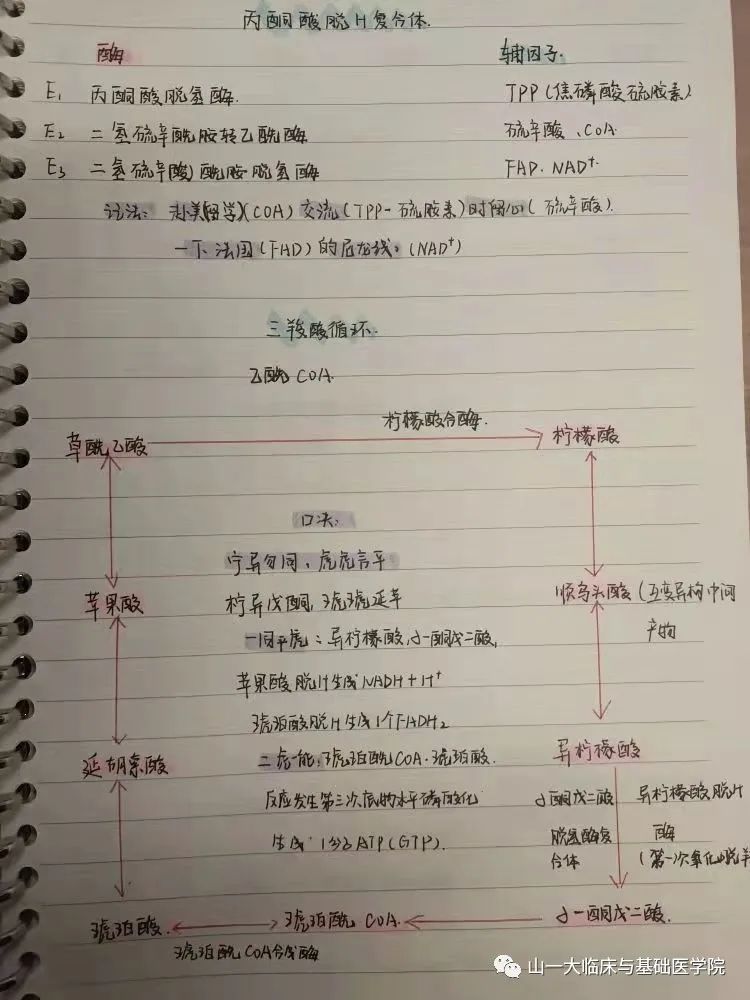 丙酮酸脱H复合体.
酶 辅因子.
E₁ 丙酮酸脱氢酶. TPP(焦磷酸硫胺素)
E₂ 二氢硫辛酰胺转乙酰酶 硫辛酸、COA
E₃ 二氢硫辛酸)酰胺脱氢酶 FAD. NAD⁺.
记法: 赴美留学(COA)交流(TPP-硫胺素)时闹心(硫辛酸).
一下法国(FAD)的尼龙线。(NAD⁺)
三羧酸循环.
乙酰COA.
柠檬酸合酶.
草酰乙酸 柠檬酸
口决:
宁异勿同、虎虎言平
苹果酸 柠异戊酮, 琥琥延苹 顺乌头酸(互变异构中间
产物
一同平虎: 异柠檬酸, α-酮戊二酸,
苹果酸脱H生成NADH+H⁺
琥珀酸脱H生成1个FADH₂
延胡索酸 二虎一能: 琥珀酰COA. 琥珀酸. 异柠檬酸
反应发生第三次底物水平磷酸化 α酮戊二酸 异柠檬酸脱H
生成 1分子ATP(GTP). 脱氢酶复 酶
合体 (第一次氧化脱羧
琥珀酸. 琥珀酰 COA. α-酮戊二酸.
琥珀酰 COA合成酶
山一大临床与基础医学院